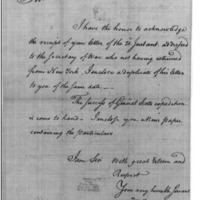 Sir
I have the honor to acknowledge
the receipt of your letter of the 22 Instant. addressed
to the Secretary of War who not having returned
from New York. I enclose a duplicate of his letter
to you of the same date.—
The success of General Scotts expedition
is come to hand— I enclose you a News paper
containing the particulars
I am Sir With great Esteem and
Respect
Your very humble Servant